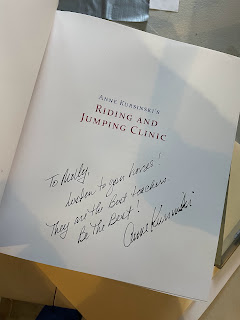 ANNE KURSINSKI'S
RIDING AND
JUMPING CLINIC
To Molly,
Listen to your horses!
They are the best teachers.
Be The Best!
Anne Kursinski